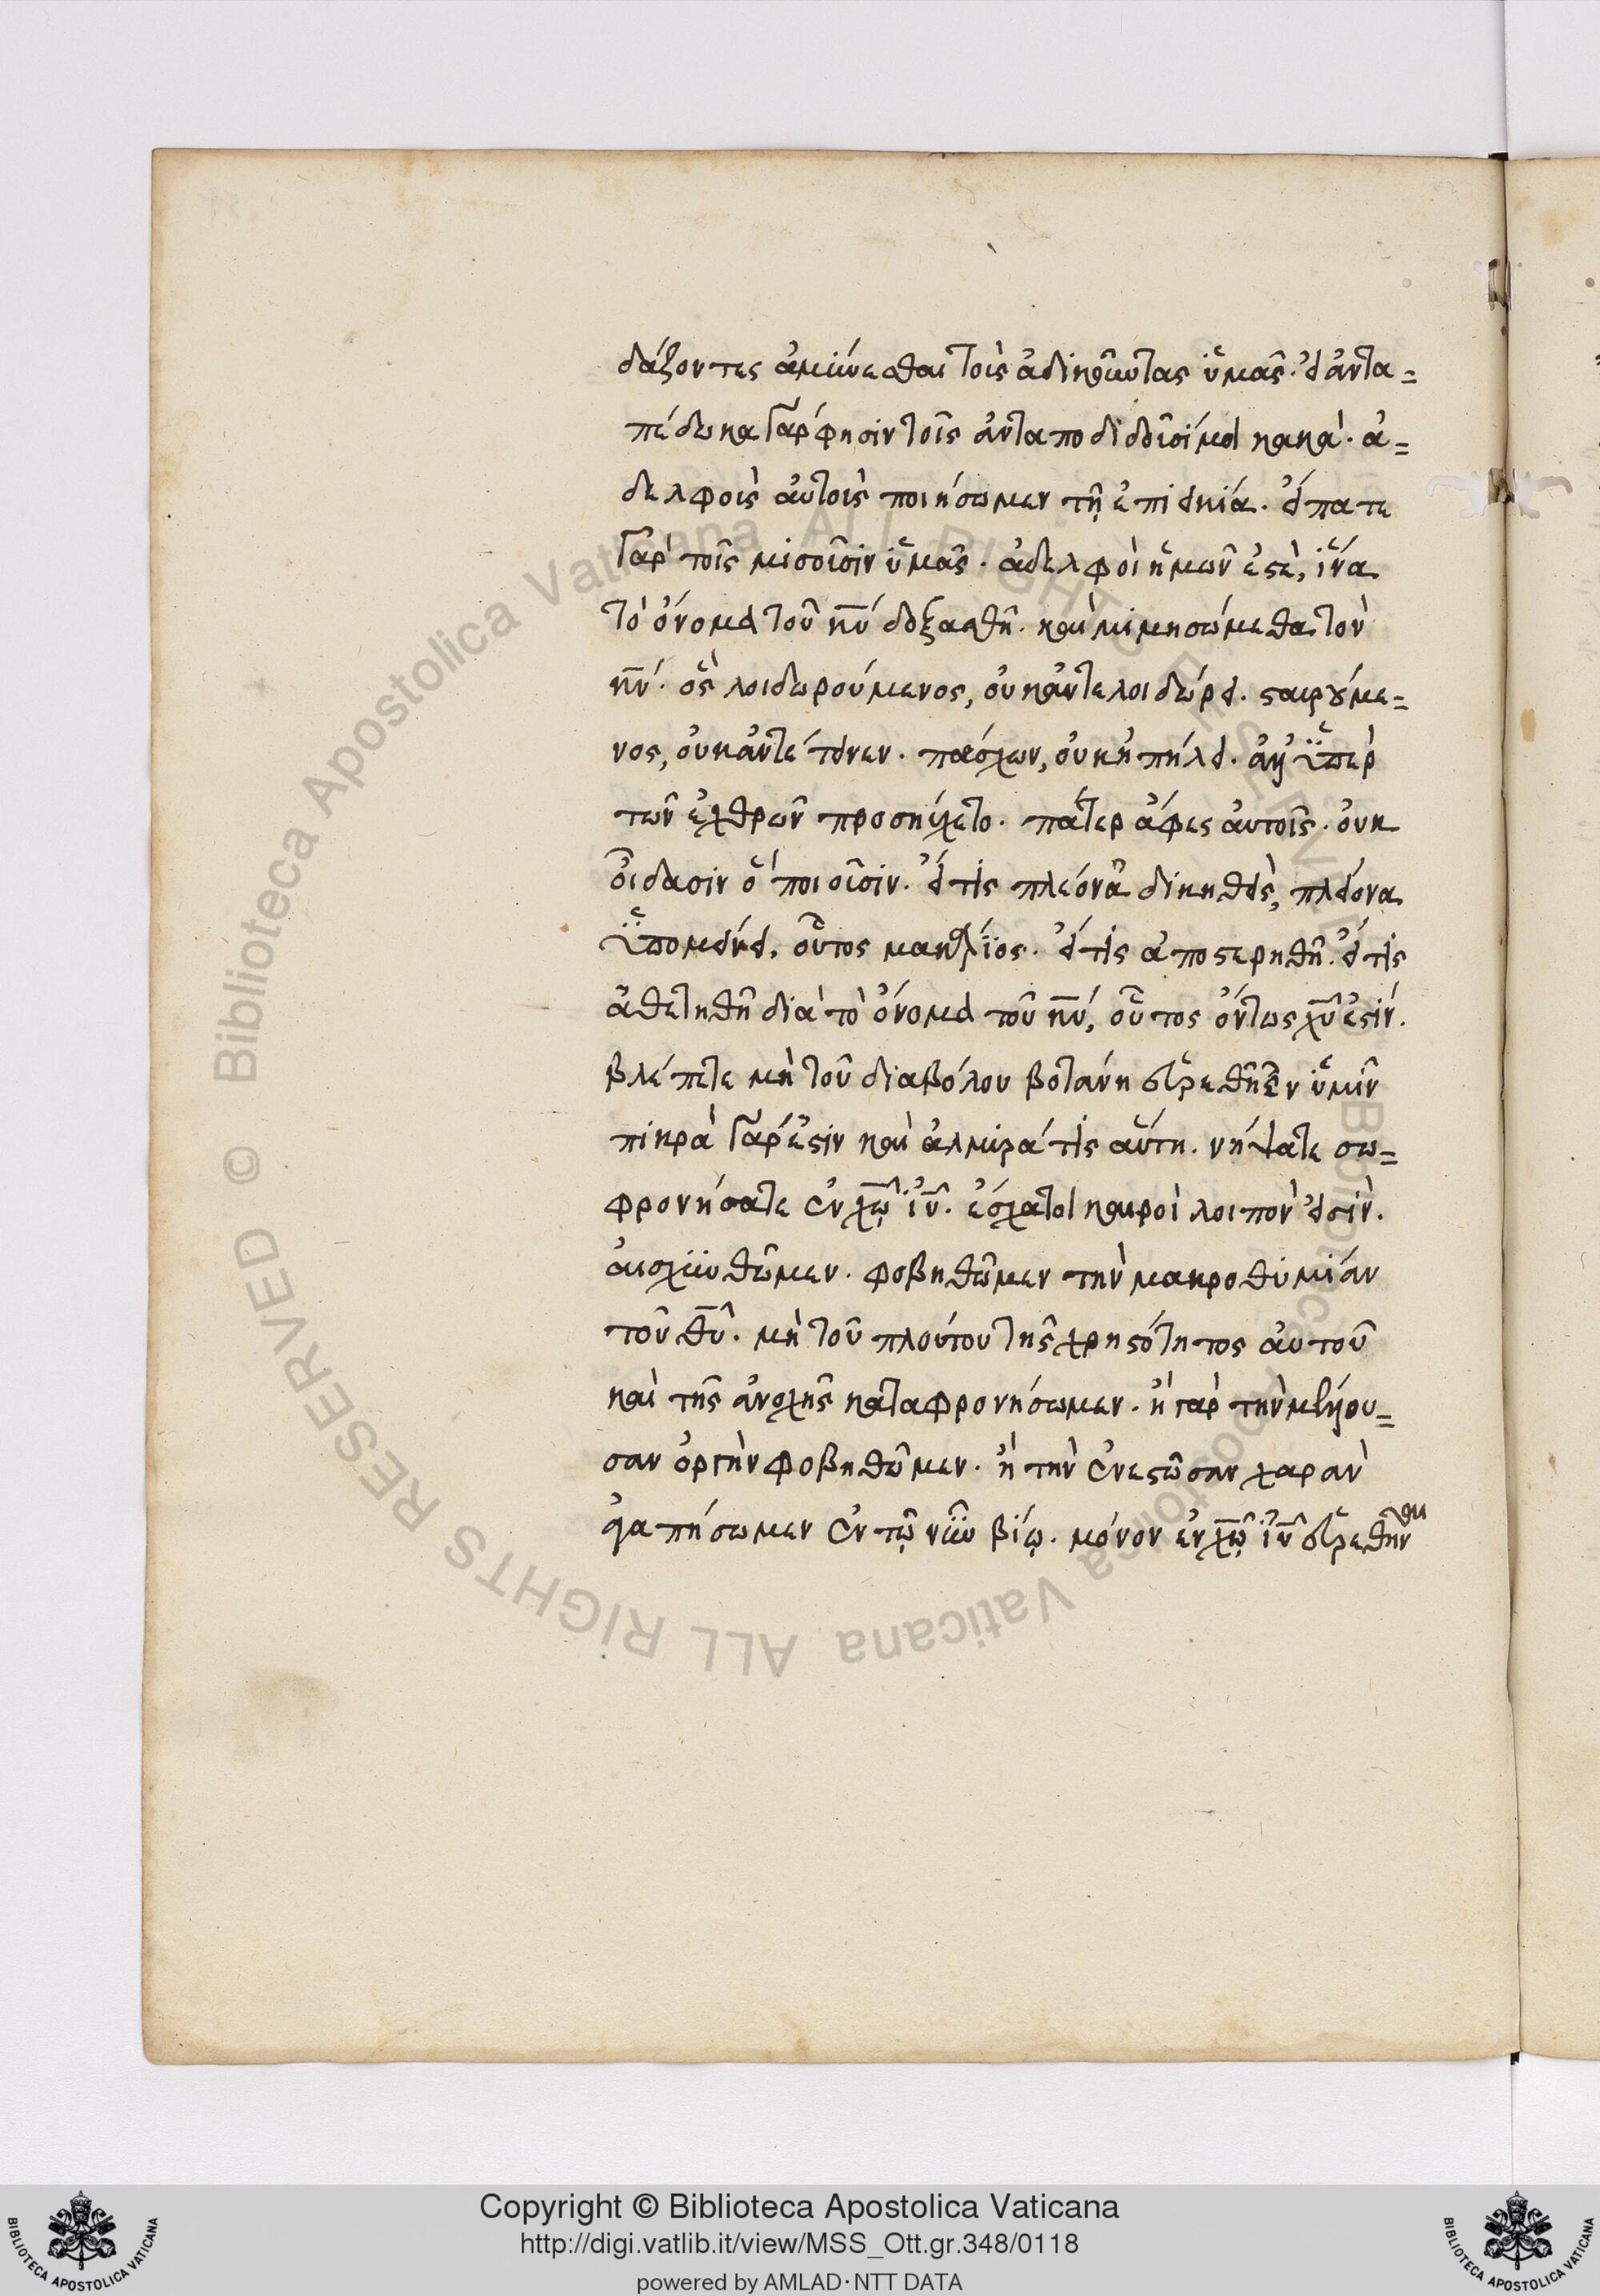 δάζοντες ἀμύνεσθαι τοὺς ἀδικοῦντας ὑμᾶς. εἰ ἀνταπ=
πέδωκα γὰρ φησὶν τοῖς ἀνταποδιδοῦσί μοι κακά. ἀ=
δελφοὺς αὐτοὺς ποιήσωμεν τῇ ἐπιεικίᾳ. εἴπατε
γὰρ τοῖς μισοῦσιν ὑμᾶς. ἀδελφοὶ ἡμῶν ἐστέ, ἵνα
τὸ ὄνομα τοῦ κ̅υ̅ δοξασθῇ. καὶ μιμησώμεθα τὸν
κ̅ν̅. ὃς λοιδωρούμενος, οὐκ ἀντελοιδώρει. σταυρούμε=
νος, οὐκ ἀντέτεινεν. πάσχων, οὐκ ἠπήλει. ἀλλ' ὑπὲρ
τῶν ἐχθρῶν προσηύχετο. πάτερ ἄφες αὐτοῖς. οὐκ
οἴδασιν ὃ ποιοῦσιν. εἴ τις πλέονα δικηθεὶς, πλείονα
ὑπομείνει, οὗτος μακάριος. εἴ τις ἀποστερηθῇ. εἴ τις
ἀθετηθῇ διὰ τὸ ὄνομα τοῦ κ̅υ̅, οὗτος ὄντως χ̅υ̅ ἐστίν.
βλέπετε μὴ τοῦ διαβόλου βοτάνη εὑρεθῇ ἐν ὑμῖν
πικρὰ γάρ ἐστιν καὶ ἁλμυρά τις αὕτη. νήψατε σω=
φρονήσατε ἐν χ̅ῳ̅ ι̅υ̅. ἔσχατοι καιροὶ λοιπὸν εἰσίν.
αἰσχυνθῶμεν. φοβηθῶμεν τὴν μακροθυμίαν
τοῦ θ̅υ̅. μὴ τοῦ πλούτου τῆς χρηστότητος αὐτοῦ
καὶ τῆς ἀνοχῆς καταφρονήσωμεν. ἢ γὰρ τὴν μέλλου=
σαν ὀργὴν φοβηθῶμεν. ἢ τὴν ἐνεστῶσαν χαρὰν
ἀγαπήσωμεν ἐν τῷ νῦν βίῳ. μόνον ἐν χ̅ῳ̅ ι̅υ̅ εὑρεθῆναι
Copyright © Biblioteca Apostolica Vaticana
http://digi.vatlib.it/view/MSS_Ott.gr.348/0118
powered by AMLAD·NTT DATA